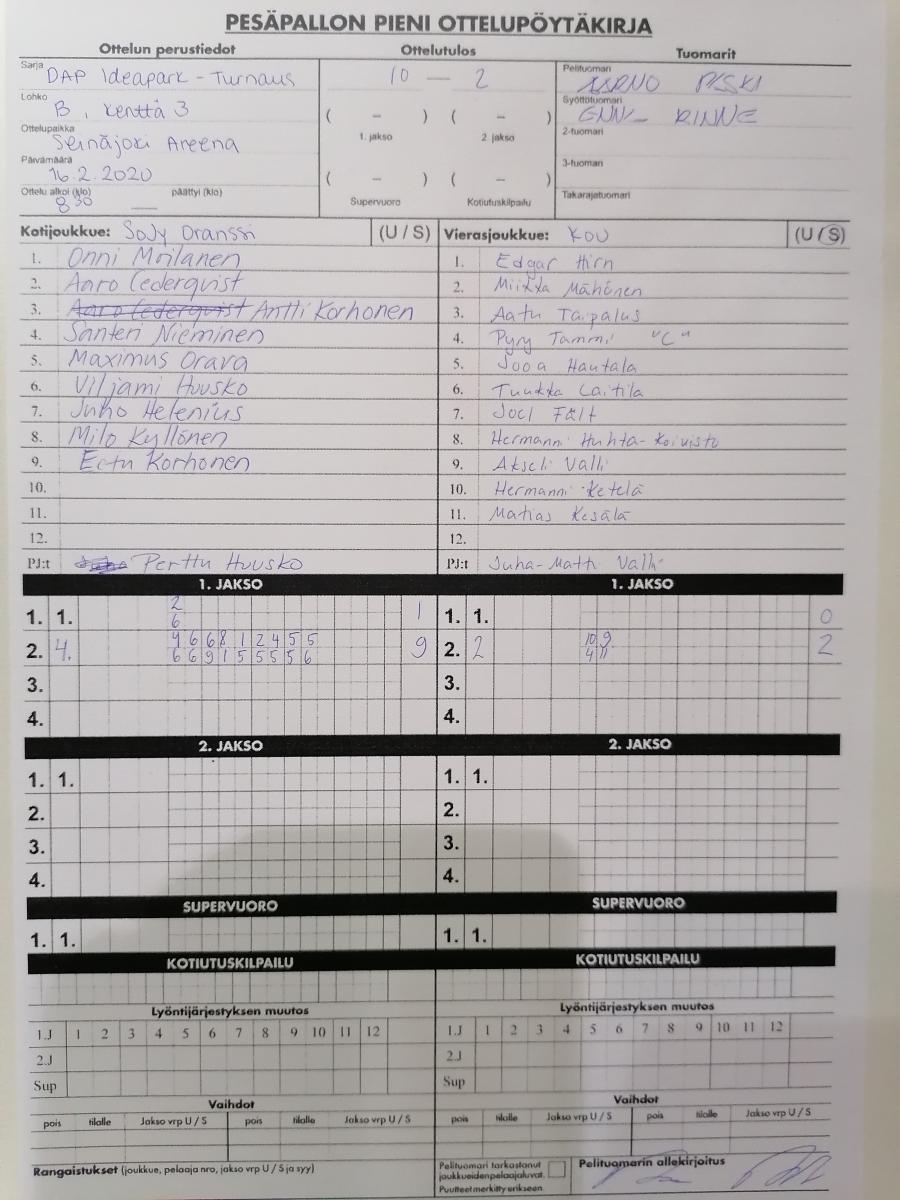 PESÄPALLON PIENI OTTELUPÖYTÄKIRJA
Ottelun perustiedot Ottelutulos Tuomarit
Sarja DAP Ideapark - Turnaus
10 — 2
Pelituomari PISKI
Lohko B, kenttä 3
( – ) ( – )
1. jakso 2. jakso
Syöttötuomari RINNE
Ottelupaikka Seinäjoki Areena
2-tuomari
Päivämäärä 16.2.2020
( – ) ( – )
Supervuoro Kotiutuskilpailu
3-tuomari
Ottelu alkoi (klo) 8 30 päättyi (klo) —
Takarajatuomari
Kotijoukkue: SoJy Oranssi (U / S) Vierasjoukkue: KOU (U / S)
1. Onni Moilanen 1. Edgar Hirn
2. Aaro Cederqvist 2. Miikka Mähönen
3. Aaro Cederqvist Antti Korhonen 3. Aatu Taipalus
4. Santeri Nieminen 4. Pyry Tammi "C"
5. Maximus Orava 5. Jooa Hautala
6. Viljami Huusko 6. Tuukka Laitila
7. Juho Helenius 7. Joel Fält
8. Milo Kyllönen 8. Hermanni Huhta-Koivisto
9. Eetu Korhonen 9. Akseli Valli
10. 10. Hermanni Ketelä
11. 11. Matias Kesälä
12. 12.
PJ:t Perttu Huusko PJ:t Juha-Matti Valli
1. JAKSO 1. JAKSO
2
1. 1. 6 1 1. 1. 0
4 6 6 8 1 2 4 5 5 10 9
2. 4. 6 6 9 1 5 5 5 5 6 9 2. 2 4 11 2
3. 3.
4. 4.
2. JAKSO 2. JAKSO
1. 1. 1. 1.
2. 2.
3. 3.
4. 4.
SUPERVUORO SUPERVUORO
1. 1. 1. 1.
KOTIUTUSKILPAILU KOTIUTUSKILPAILU
Lyöntijärjestyksen muutos Lyöntijärjestyksen muutos
1.J 1 2 3 4 5 6 7 8 9 10 11 12 1.J 1 2 3 4 5 6 7 8 9 10 11 12
2.J 2.J
Sup Sup
Vaihdot Vaihdot
pois tilalle Jakso vrp U / S pois tilalle Jakso vrp U / S pois tilalle Jakso vrp U / S pois tilalle Jakso vrp U / S
Rangaistukset (joukkue, pelaaja nro, jakso vrp U / S ja syy)
Pelituomari tarkastanut
joukkueidenpelaajaluvat.
Puutteet merkitty erikseen.
Pelituomarin allekirjoitus